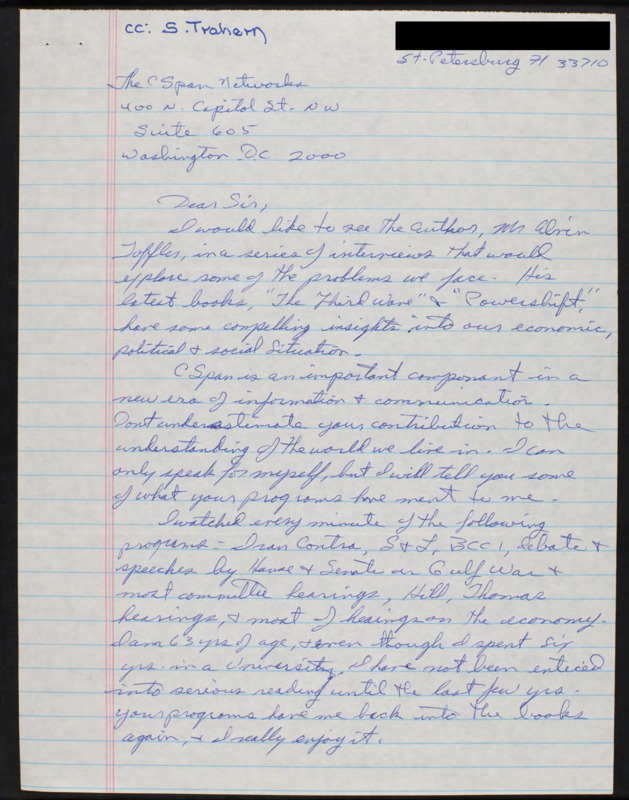 cc: S. Trahern
St. Petersburg Fl 33710
The C Span Networks
400 N. Capitol St. N.W
Suite 605
Washington DC 2000
Dear Sir,
I would like to see the author, Mr Alvin
Toffler, in a series of interviews that would
explore some of the problems we face. His
latest books, "The Third Wave" & "Powershift",
have some compelling insights into our economic,
political & social situation.
C Span is an important componant in a
new era of information & communication.
Dont underestimate your contribution to the
understanding of the world we live in. I can
only speak for myself, but I will tell you some
of what your programs have ment to me.
I watched every minute of the following
programs - Iran Contra, S & L, BCC1, debate &
speeches by House & Senate on Gulf War &
most committie hearings, Hill, Thomas
hearings, & most of hearings on the economy.
I am 63 yrs of age, & even though I spent six
yrs. in a University, I have not been enticed
into serious reading until the last few yrs.
your programs have me back into the books
again, & I really enjoy it.